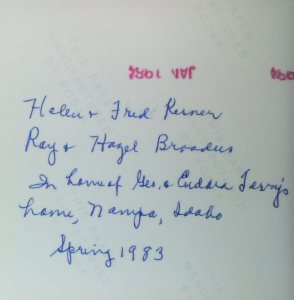 JAN 1984
Helen & Fred Rerner
Ray & Hazel Broadus
In home of Geo. & Eudora Terry's
home, Nampa, Idaho
Spring 1983